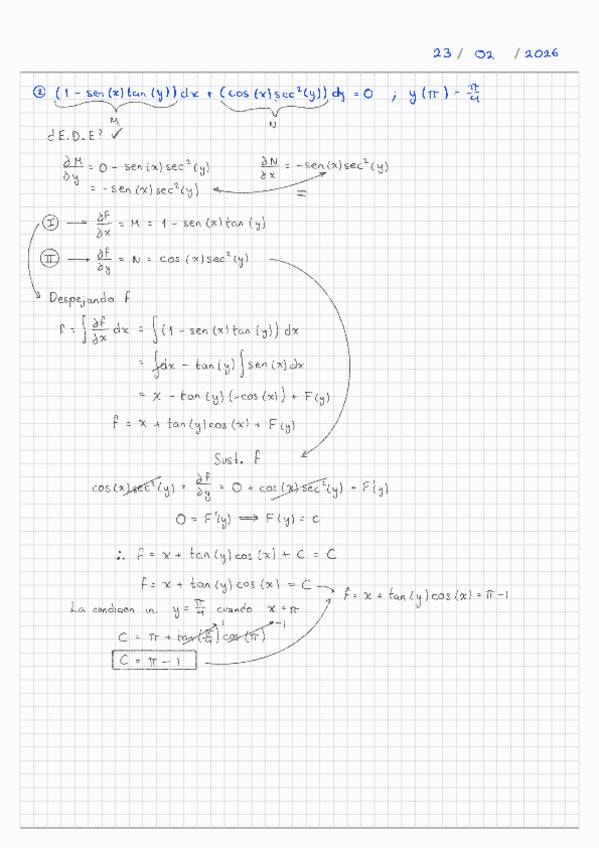 23 / 02 / 2026
② (1 - sen(x)tan(y))dx + (cos(x)sec²(y))dy = 0 ; y(π) - π/4
M N
¿E.D.E? ✓
∂M/∂y = 0 - sen(x)sec²(y) ∂N/∂x = -sen(x)sec²(y)
= -sen(x)sec²(y) =
Ⓘ → ∂f/∂x = M = 1 - sen(x)tan(y)
Ⅱ → ∂f/∂y = N = cos(x)sec²(y)
Despejando f
f = ∫ ∂f/∂x dx = ∫(1 - sen(x)tan(y))dx
= ∫dx - tan(y)∫sen(x)dx
= x - tan(y)(-cos(x)) + F(y)
f = x + tan(y)cos(x) + F(y)
Sust. f
cos(x)sec²(y) = ∂f/∂y = 0 + cos(x)sec²(y) + F'(y)
0 = F'(y) ⟹ F(y) = c
∴ f = x + tan(y)cos(x) + C = C
f = x + tan(y)cos(x) = C → f = x + tan(y)cos(x) = π - 1
La condicion in. y = π/4 cuando x = π
C = π + tan(π/4)cos(π) 1 -1
C = π - 1